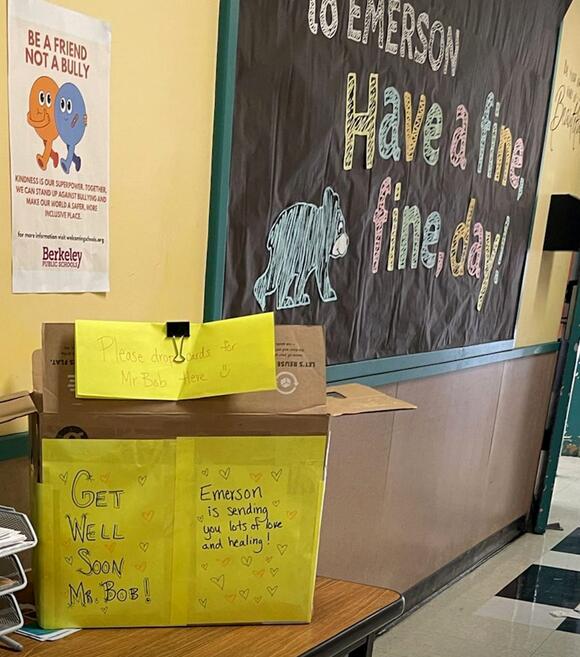 BE A FRIEND
NOT A BULLY
KINDNESS IS OUR SUPERPOWER. TOGETHER,
WE CAN STAND UP AGAINST BULLYING AND
MAKE OUR WORLD A SAFER, MORE
INCLUSIVE PLACE.
for more information visit welcomingschools.org
Berkeley
PUBLIC SCHOOLS
to EMERSON
Have a fine,
fine, day!
Please drop cards for
Mr Bob Here
LET'S REUSE
GET
WELL
SOON
MR. BOB!
Emerson
is sending
you lots of love
and healing!